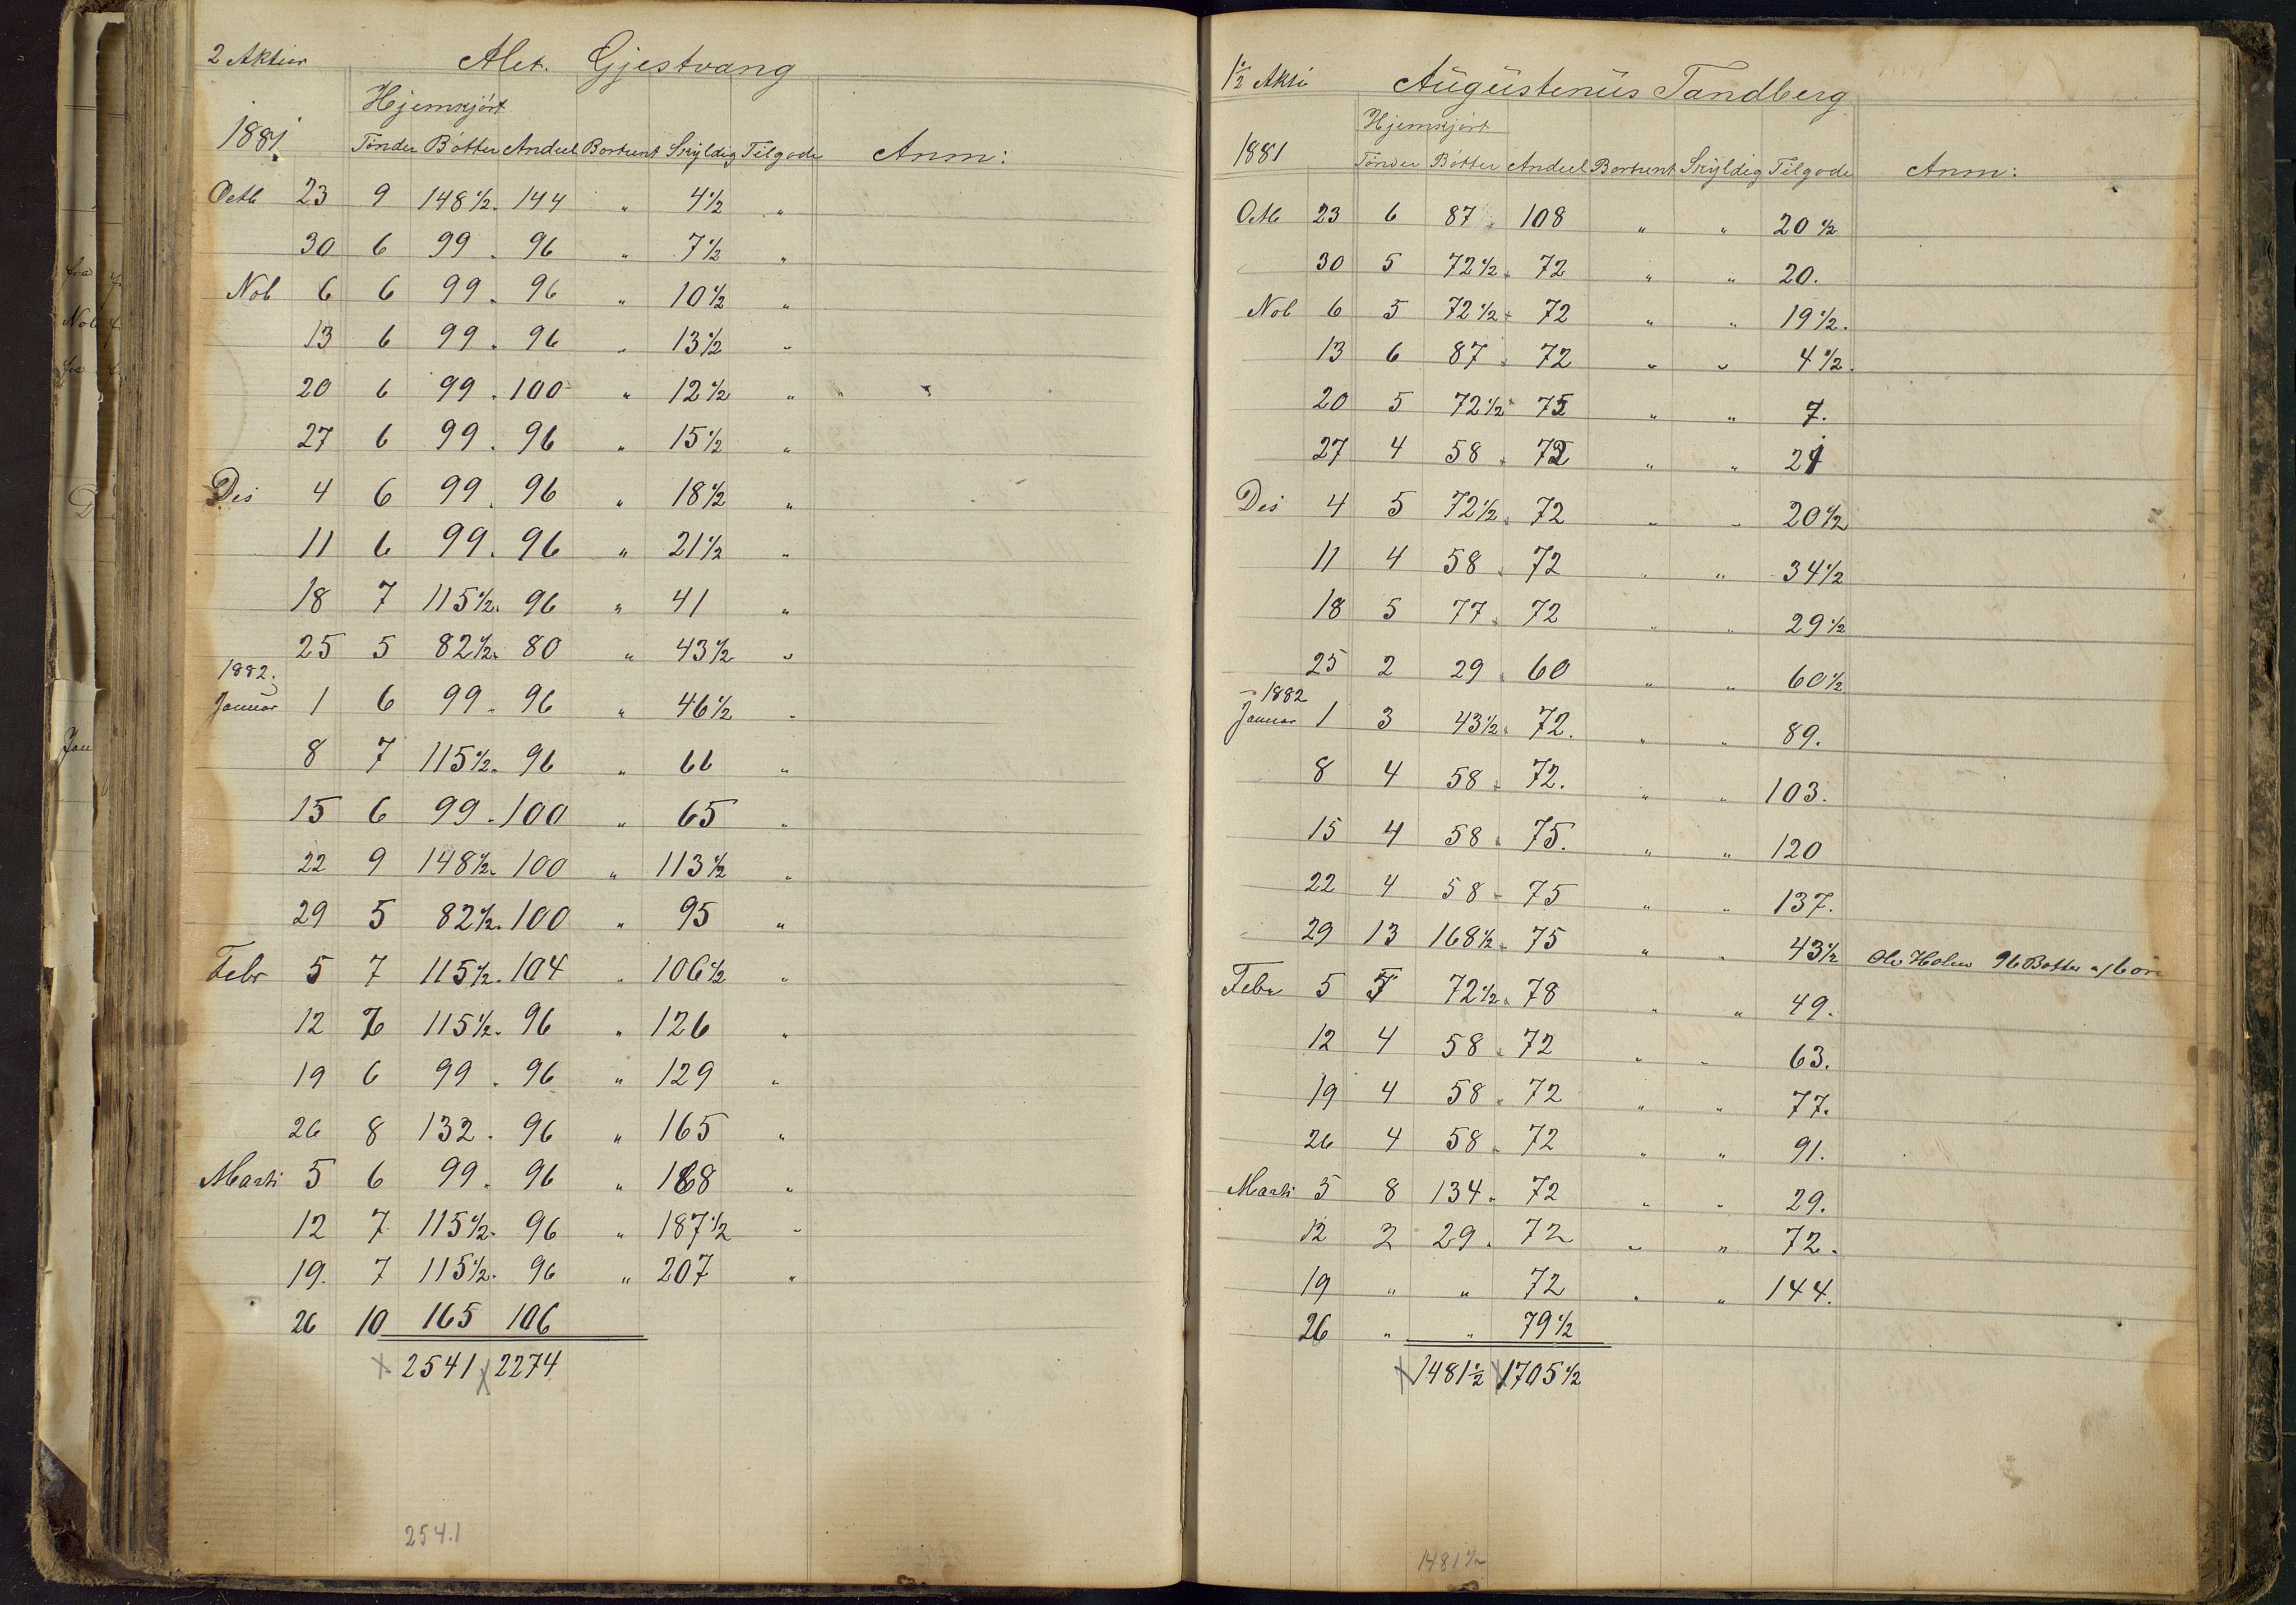 2 Aktier Alet. Gjestvang
Hjemkjört
1881 Tönder Bötter Andeel Bortsent Skÿldig Tilgode Anm:
Octb 23 9 148 1/2 . 144 " 4 1/2 "
30 6 99 . 96 " 7 1/2 "
Nob 6 6 99 . 96 " 10 1/2 "
13 6 99 . 96 " 13 1/2 "
20 6 99 . 100 " 12 1/2 "
27 6 99 . 96 " 15 1/2 "
Des 4 6 99 . 96 " 18 1/2 "
11 6 99 . 96 " 21 1/2 "
18 7 115 1/2 . 96 " 41 "
25 5 82 1/2 . 80 " 43 1/2 "
1882.
Januar 1 6 99 . 96 " 46 1/2 "
8 7 115 1/2 . 96 " 66 "
15 6 99 . 100 " 65 "
22 9 148 1/2 . 100 " 113 1/2 "
29 5 82 1/2 . 100 " 95 "
Febr 5 7 115 1/2 . 104 " 106 1/2 "
12 7 115 1/2 . 96 " 126 "
19 6 99 . 96 " 129 "
26 8 132 . 96 " 165 "
Marts 5 6 99 . 96 " 168 "
12 7 115 1/2 . 96 " 187 1/2 "
19. 7 115 1/2 . 96 " 207 "
26 10 165 106
2541 2274
2541
1 1/2 Akti Aügüstenüs Tandberg
Hjemkjört
1881 Tönder Bötter Andeel Bortsent Skÿldig Tilgode Anm:
Octb 23 6 87 . 108 " " 20 1/2
30 5 72 1/2 . 72 " " 20.
Nob 6 5 72 1/2 . 72 " " 19 1/2.
13 6 87 . 72 " " 4 1/2.
20 5 72 1/2 . 75 " " 7.
27 4 58 . 72 " " 21
Des 4 5 72 1/2 . 72 " " 20 1/2
11 4 58 . 72 " " 34 1/2
18 5 77 . 72 " " 29 1/2
25 2 29 . 60 " " 60 1/2
1882
Januar 1 3 43 1/2 . 72. " " 89.
8 4 58 . 72. " " 103.
15 4 58 . 75. " " 120
22 4 58 - 75 " " 137.
29 13 168 1/2 . 75 " " 43 1/2 Ole Holen 96 Botter
Febr 5 5 72 1/2 . 78 " " 49.
12 4 58 . 72 " " 63.
19 4 58 . 72 " " 77.
26 4 58 . 72 " " 91.
Marts 5 8 134 . 72 " " 29.
12 2 29 . 72 " " 72.
19 " " 72 " " 144.
26 " " 79 1/2
1481 1/2 1705 1/2
1481 1/2